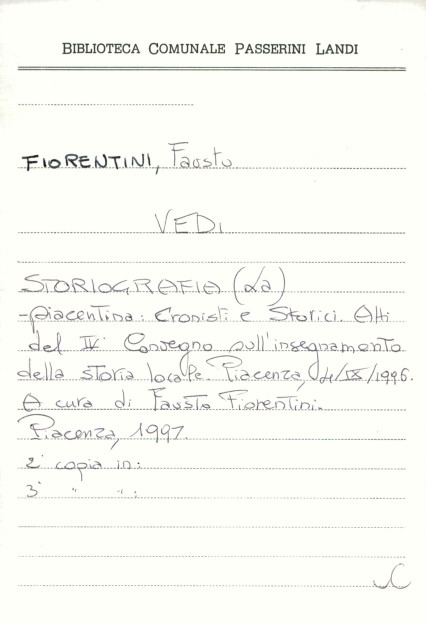 BIBLIOTECA COMUNALE PASSERINI LANDI
FIORENTINI, Fausto
VEDI
STORIOGRAFIA (La)
-piacentina: Cronisti e Storici. Atti
del IV Convegno sull'insegnamento
della storia locale. Piacenza, 4/IX/1996.
A cura di Fausto Fiorentini.
Piacenza, 1997.
2ª copia in:
3ª " ":